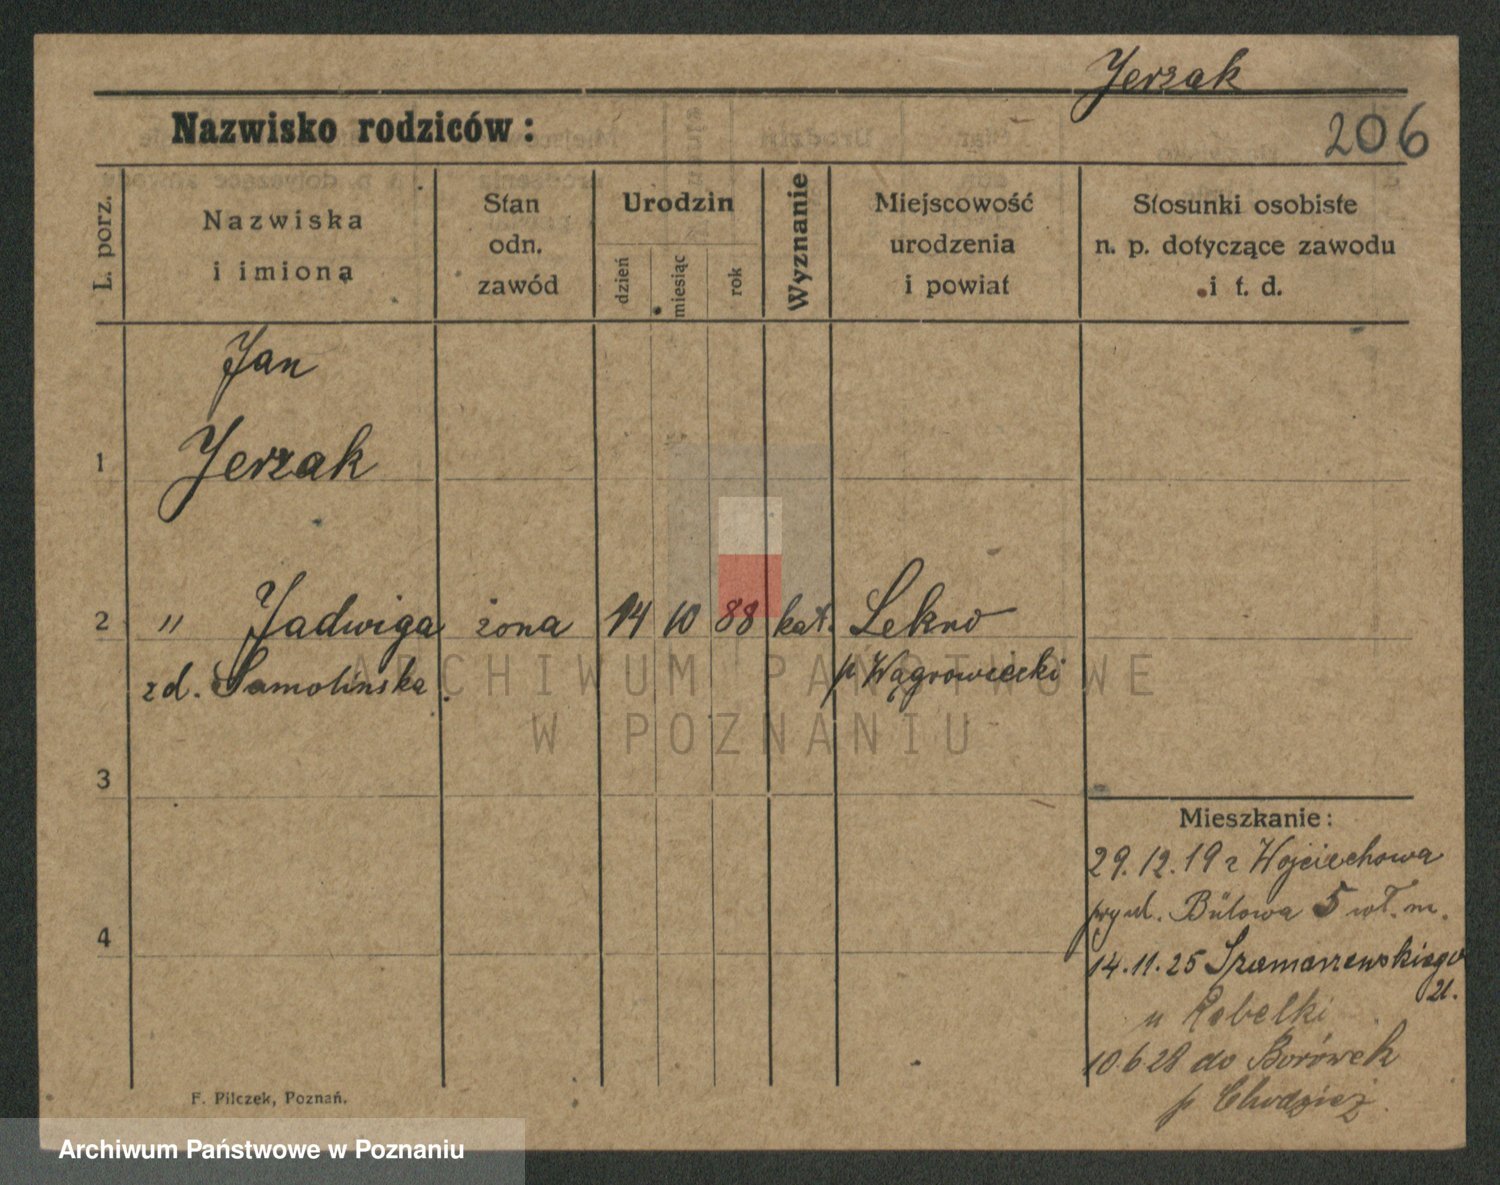 Jerzak
206
Nazwisko rodziców:
L. porz.
Nazwiska
i imiona
Stan
odn.
zawód
Urodzin
dzień
miesiąc
rok
Wyznanie
Miejscowość
urodzenia
i powiat
Stosunki osobiste
n. p. dotyczące zawodu
i t. d.
Jan
1 Jerzak
2 " Jadwiga żona 14 10 88 kat. Lekno
zd. Samolinska p Wągrowiecki
ARCHIWUM PAŃSTWOWE
W POZNANIU
3
Mieszkanie:
29.12.19 z Wojciechowa
przy ul. Bülowa 5 wł. m.
4
14.11.25 Szamarzewskiego
21.
u Rebelki
10.6 28 do Borówek
p Chodzież
F. Pilczek, Poznań.
Archiwum Państwowe w Poznaniu